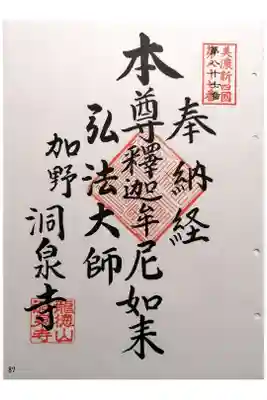 美濃新四國
第八十七番
奉納経
本尊釋迦牟尼如来
弘法大師
加野 洞泉寺
龍徳山
洞泉寺
87